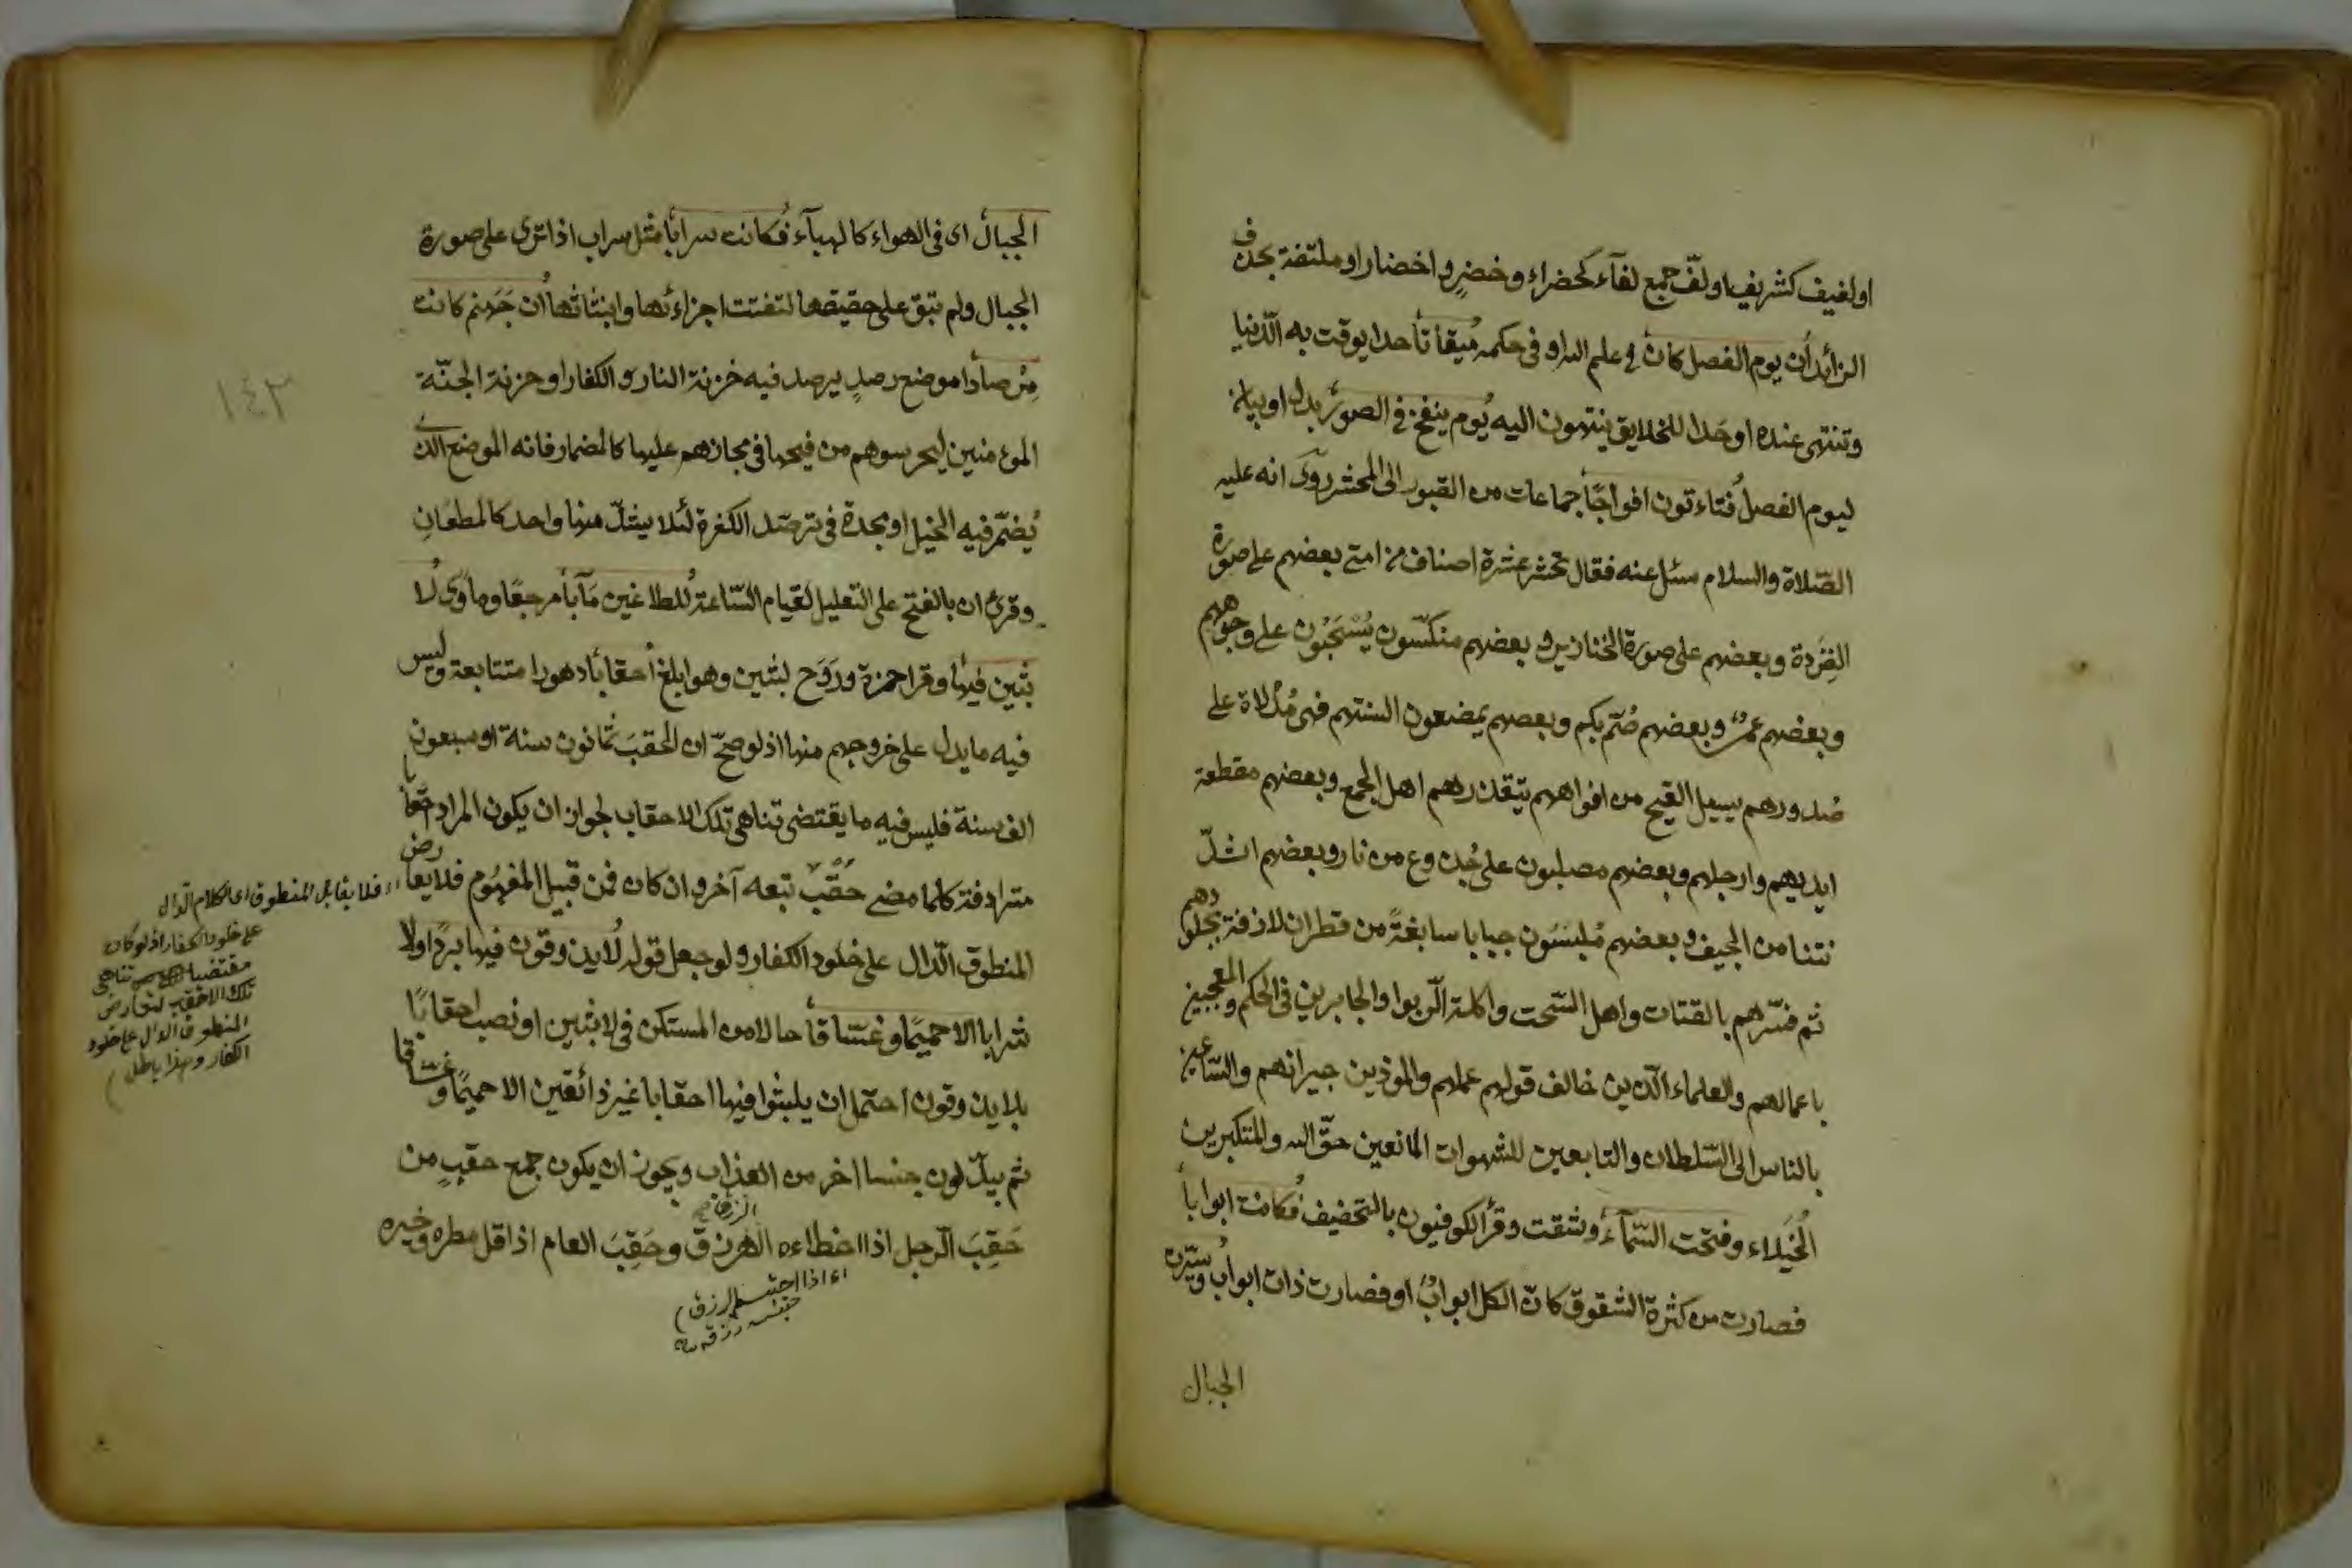 او لفيف كشريف او لفّ جمع لفآء كخضراء وخضرٍ واخضار او ملتفة بحذف
الزائد أن يوم الفصل كان في علم الله او في حكمه ميقاتا حدا يوقت به الدّنيا
وتنتهى عنده او حدا للخلايق ينتهون اليه يوم ينفخ في الصور بدل او بيان
ليوم الفصل فتاءتون افواجًا جماعات من القبور الى المحشر روى انه عليه
الصّلاة والسلام سئل عنه فقال تحشر عشرة اصناف من امتى بعضهم على صورة
القِرَدة وبعضهم على صورة الخنازير وبعضهم منكسّون يُسْحَبُون على وجوههم
وبعضهم عمىٌ وبعضهم صُمّ بكم وبعضهم يمضغون السنتهم فهى مُدْلاة على
صُدورهم يسيل القيح من افواههم يتقذرهم اهل الجمع وبعضهم مقطعة
ايديهم وارجلهم وبعضهم مصلبون على جُذوع من نار وبعضهم اشدّ
نتنا من الجيف وبعضهم مُلبسَون جبابا سابغةً من قطران لازقة بجُلودهم
ثم فسّرهم بالقتات واهل السّحت واكلة الرّبوا والجابرين في الحكم والمعجبين
باعمالهم والعلماء الّذين خالف قولهم عملهم والموذين جيرانهم والسّاعين
بالناس الى السّلطان والتابعين للشهوات المانعين حقّ الله والمتكبرين
الخُيَلاء وفتحت السّمآء وشقت وقرأ الكوفيون بالتخفيف فكانت ابوابا
فصارت من كثرة الشقوق كانّ الكل ابوابٌ او فصارت ذات ابواب وسيّرت
الجبال
الجبال اى فى الهواء كالهبآء فكانت سرابًا مثل سراب اذا ترى على صورة
الجبال ولم تبق على حقيقتها لتفتت اجزائها وانبثاثها أن جَهنم كانت
مِرْصادا موضع رصدٍ يرصد فيه خزنة النار والكفار او خزنة الجنّة
الموءمنين ليحرسوهم من فيحها فى مجازهم عليها كالمضمار فانه الموضع الذى
يُضَمّر فيه الخيل او مجدة فى ترصّد الكفرة لئلا يشذّ منها واحد كالمطعان
وقرئ ان بالفتح على التعليل لقيام السّاعة للطاغين مَآبًا مرجعًا وماوًى لا
بثين فيها وقرا حمزة ورَوْح لبثين وهو ابلغ أحقابًا دهورا متتابعة وليس
فيه ما يدل على خروجهم منها اذ لو صحّ ان الحقبَ ثمانون سنة او سبعون
الف سنة فليس فيه ما يقتضى تناهى تلك الاحقاب لجواز ان يكون المراد احقابا
مترادفة كلما مضى حُقُبٌ تبعه آخر وان كان فمن قبيل المفهُوم فلا يعارض
المنطوق الدّال على خلود الكفار ولو جعل قوله لا يذوقون فيها بردًا ولا
شرابا الا حميمًا وغسّاقًا حالا من المستكن فى لابثين او نصب احقابًا
بلا يذوقون احتمل ان يلبثوا فيها احقابا غير ذائقين الا حميمًا وغسّاقا
ثم يبدّلون جنسا اخر من العذاب ويجوز ان يكون جمع حقبٍ من
الرزق صح
حَقِبَ الرّجل اذا اخطاءه الهرزق وحَقِبَ العام اذا قل مطره وخيره
اى اذا احتبس الرزق
فلا يقابل المنطوق اى الكلام الدّال
على خلود الكفار اذ لو كان
مقتضيا تناهى
تلك الاحقاب لتعارض
المنطوق الدال على خلود
الكفار وهذا باطل
١٤٣